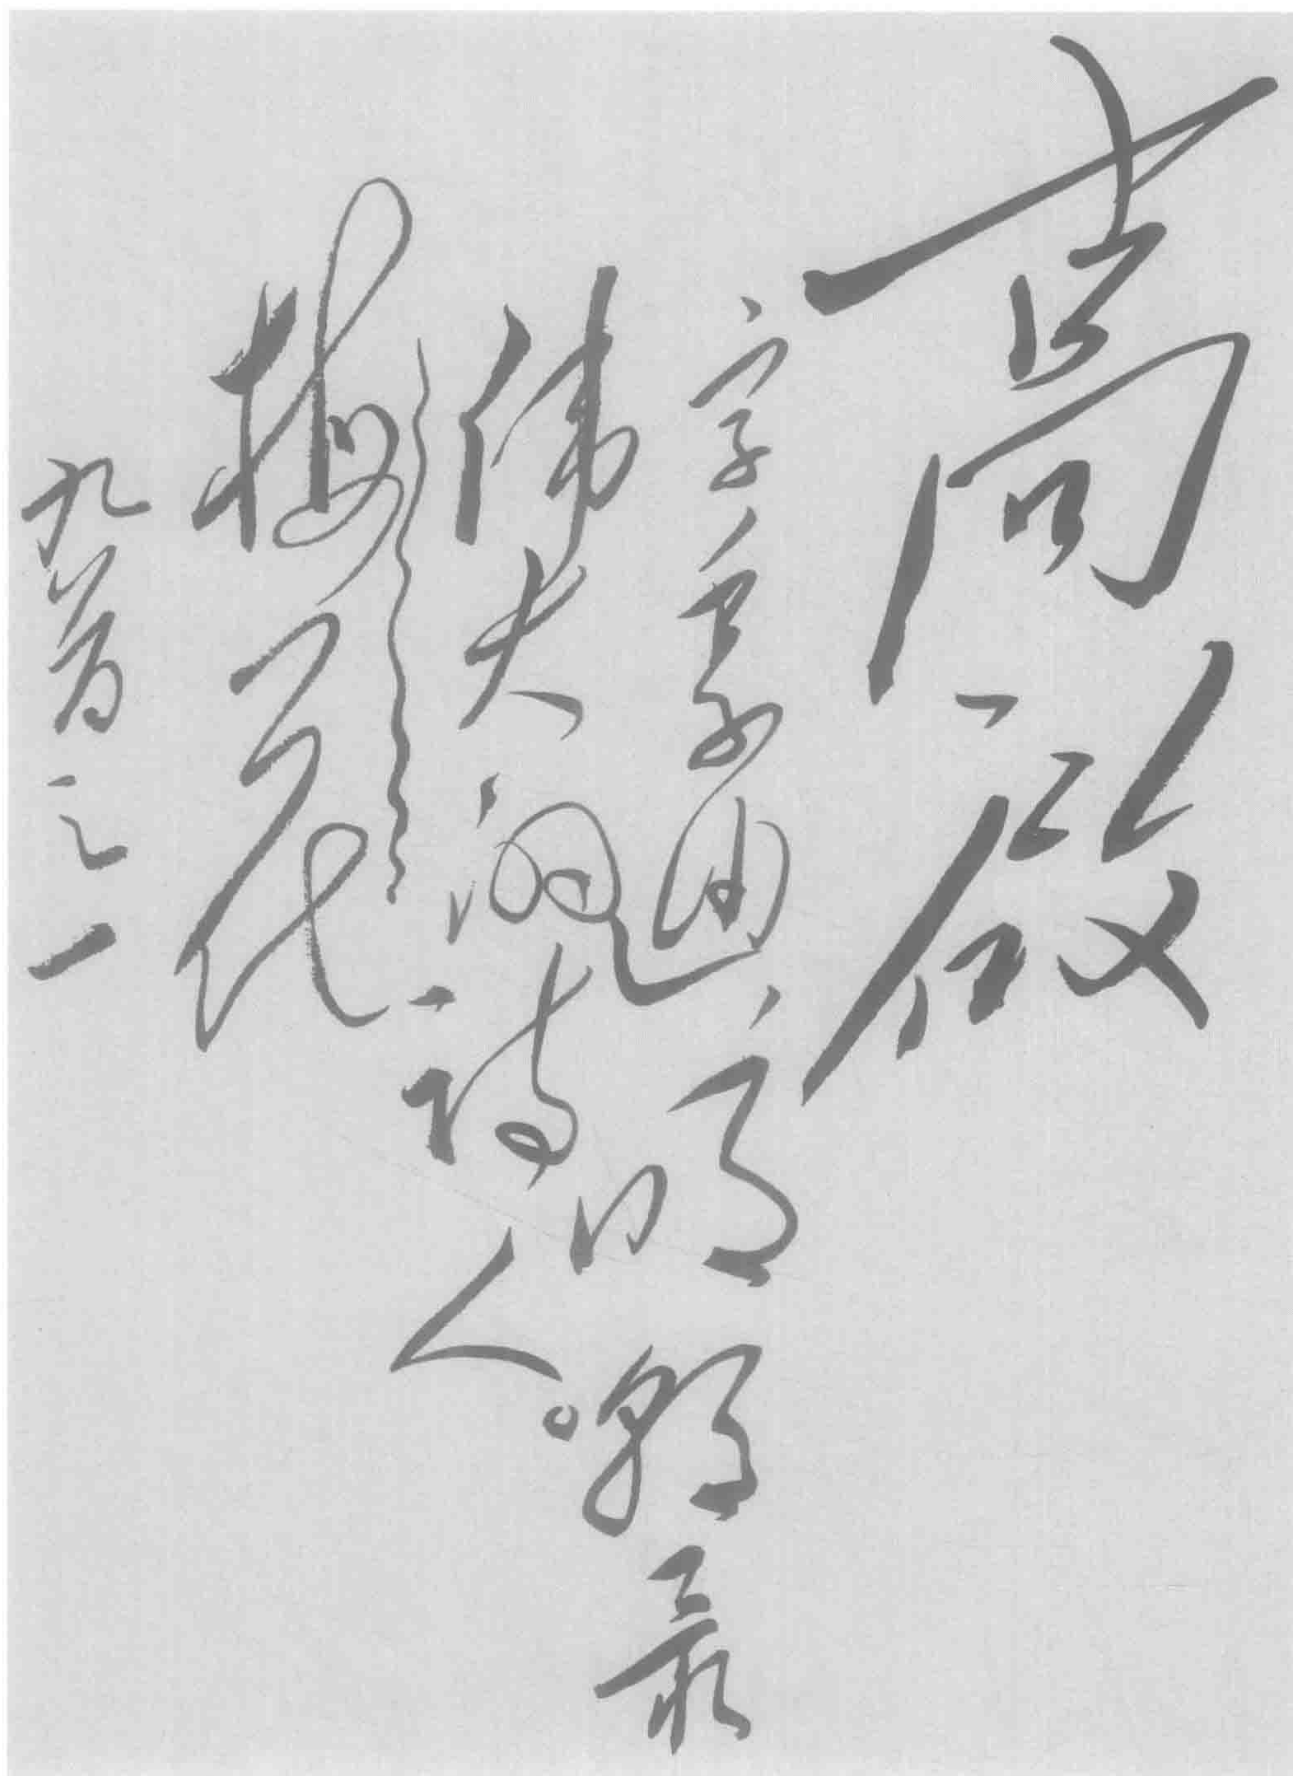 高启
字季迪，明朝最
伟大的诗人。
梅花
九首之一